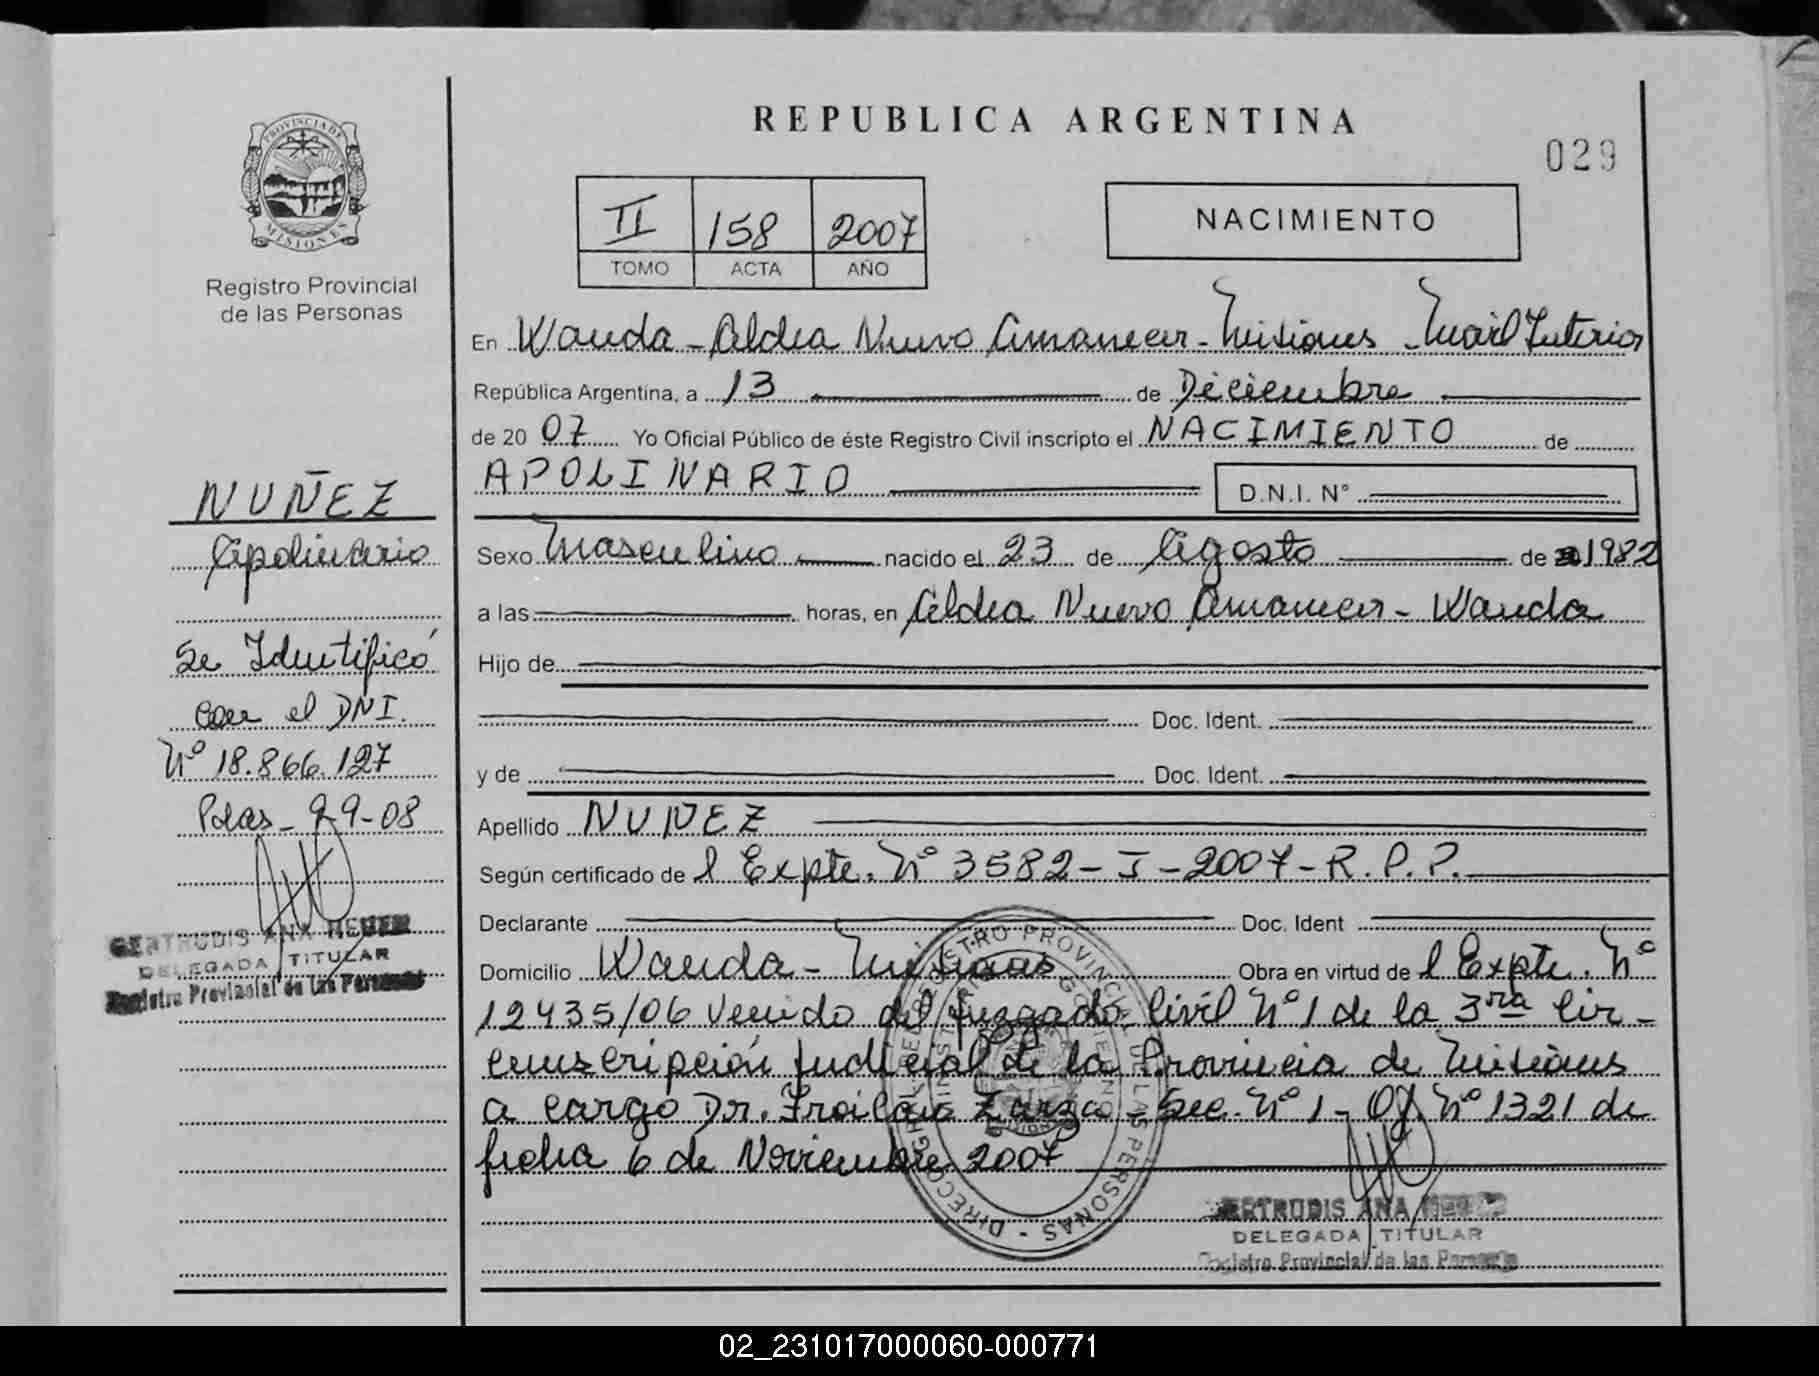 REPUBLICA ARGENTINA
029
PROVINCIA DE
MISIONES
Registro Provincial
de las Personas
II 158 2007
TOMO ACTA AÑO
NACIMIENTO
En Wanda - Aldea Nuevo Amanecer - Misiones
República Argentina, a 13 de Diciembre
de 20 07 Yo Oficial Público de éste Registro Civil inscripto el NACIMIENTO de
APOLINARIO D.N.I. N°
Sexo Masculino nacido el 23 de Agosto de 1982
a las horas, en Aldea Nuevo Amanecer - Wanda
Hijo de
Doc. Ident.
y de Doc. Ident.
Apellido NUÑEZ
Según certificado de l Expte. N° 3582 - I - 2007 - R.P.P.
Declarante Doc. Ident
Domicilio Wanda - Misiones Obra en virtud de l Expte. N°
12435/06 Venido del Juzgado Civil N° 1 de la 3ra Cir-
cunscripción Judicial de la Provincia de Misiones
a cargo Dr. Froilán Zarza - Sec. N° 1 - Of. N° 1321 de
fecha 6 de Noviembre 2007
GERTRUDIS ANA
DELEGADA TITULAR
Registro Provincial de las Personas
NUÑEZ
Apolinario
Se Identificó
con el DNI.
N° 18.866.127
Pdas - 9-9-08
GERTRUDIS ANA
DELEGADA TITULAR
Registro Provincial de las Personas
REGISTRO PROVINCIAL DE LAS PERSONAS - DIRECC
02_231017000060-000771